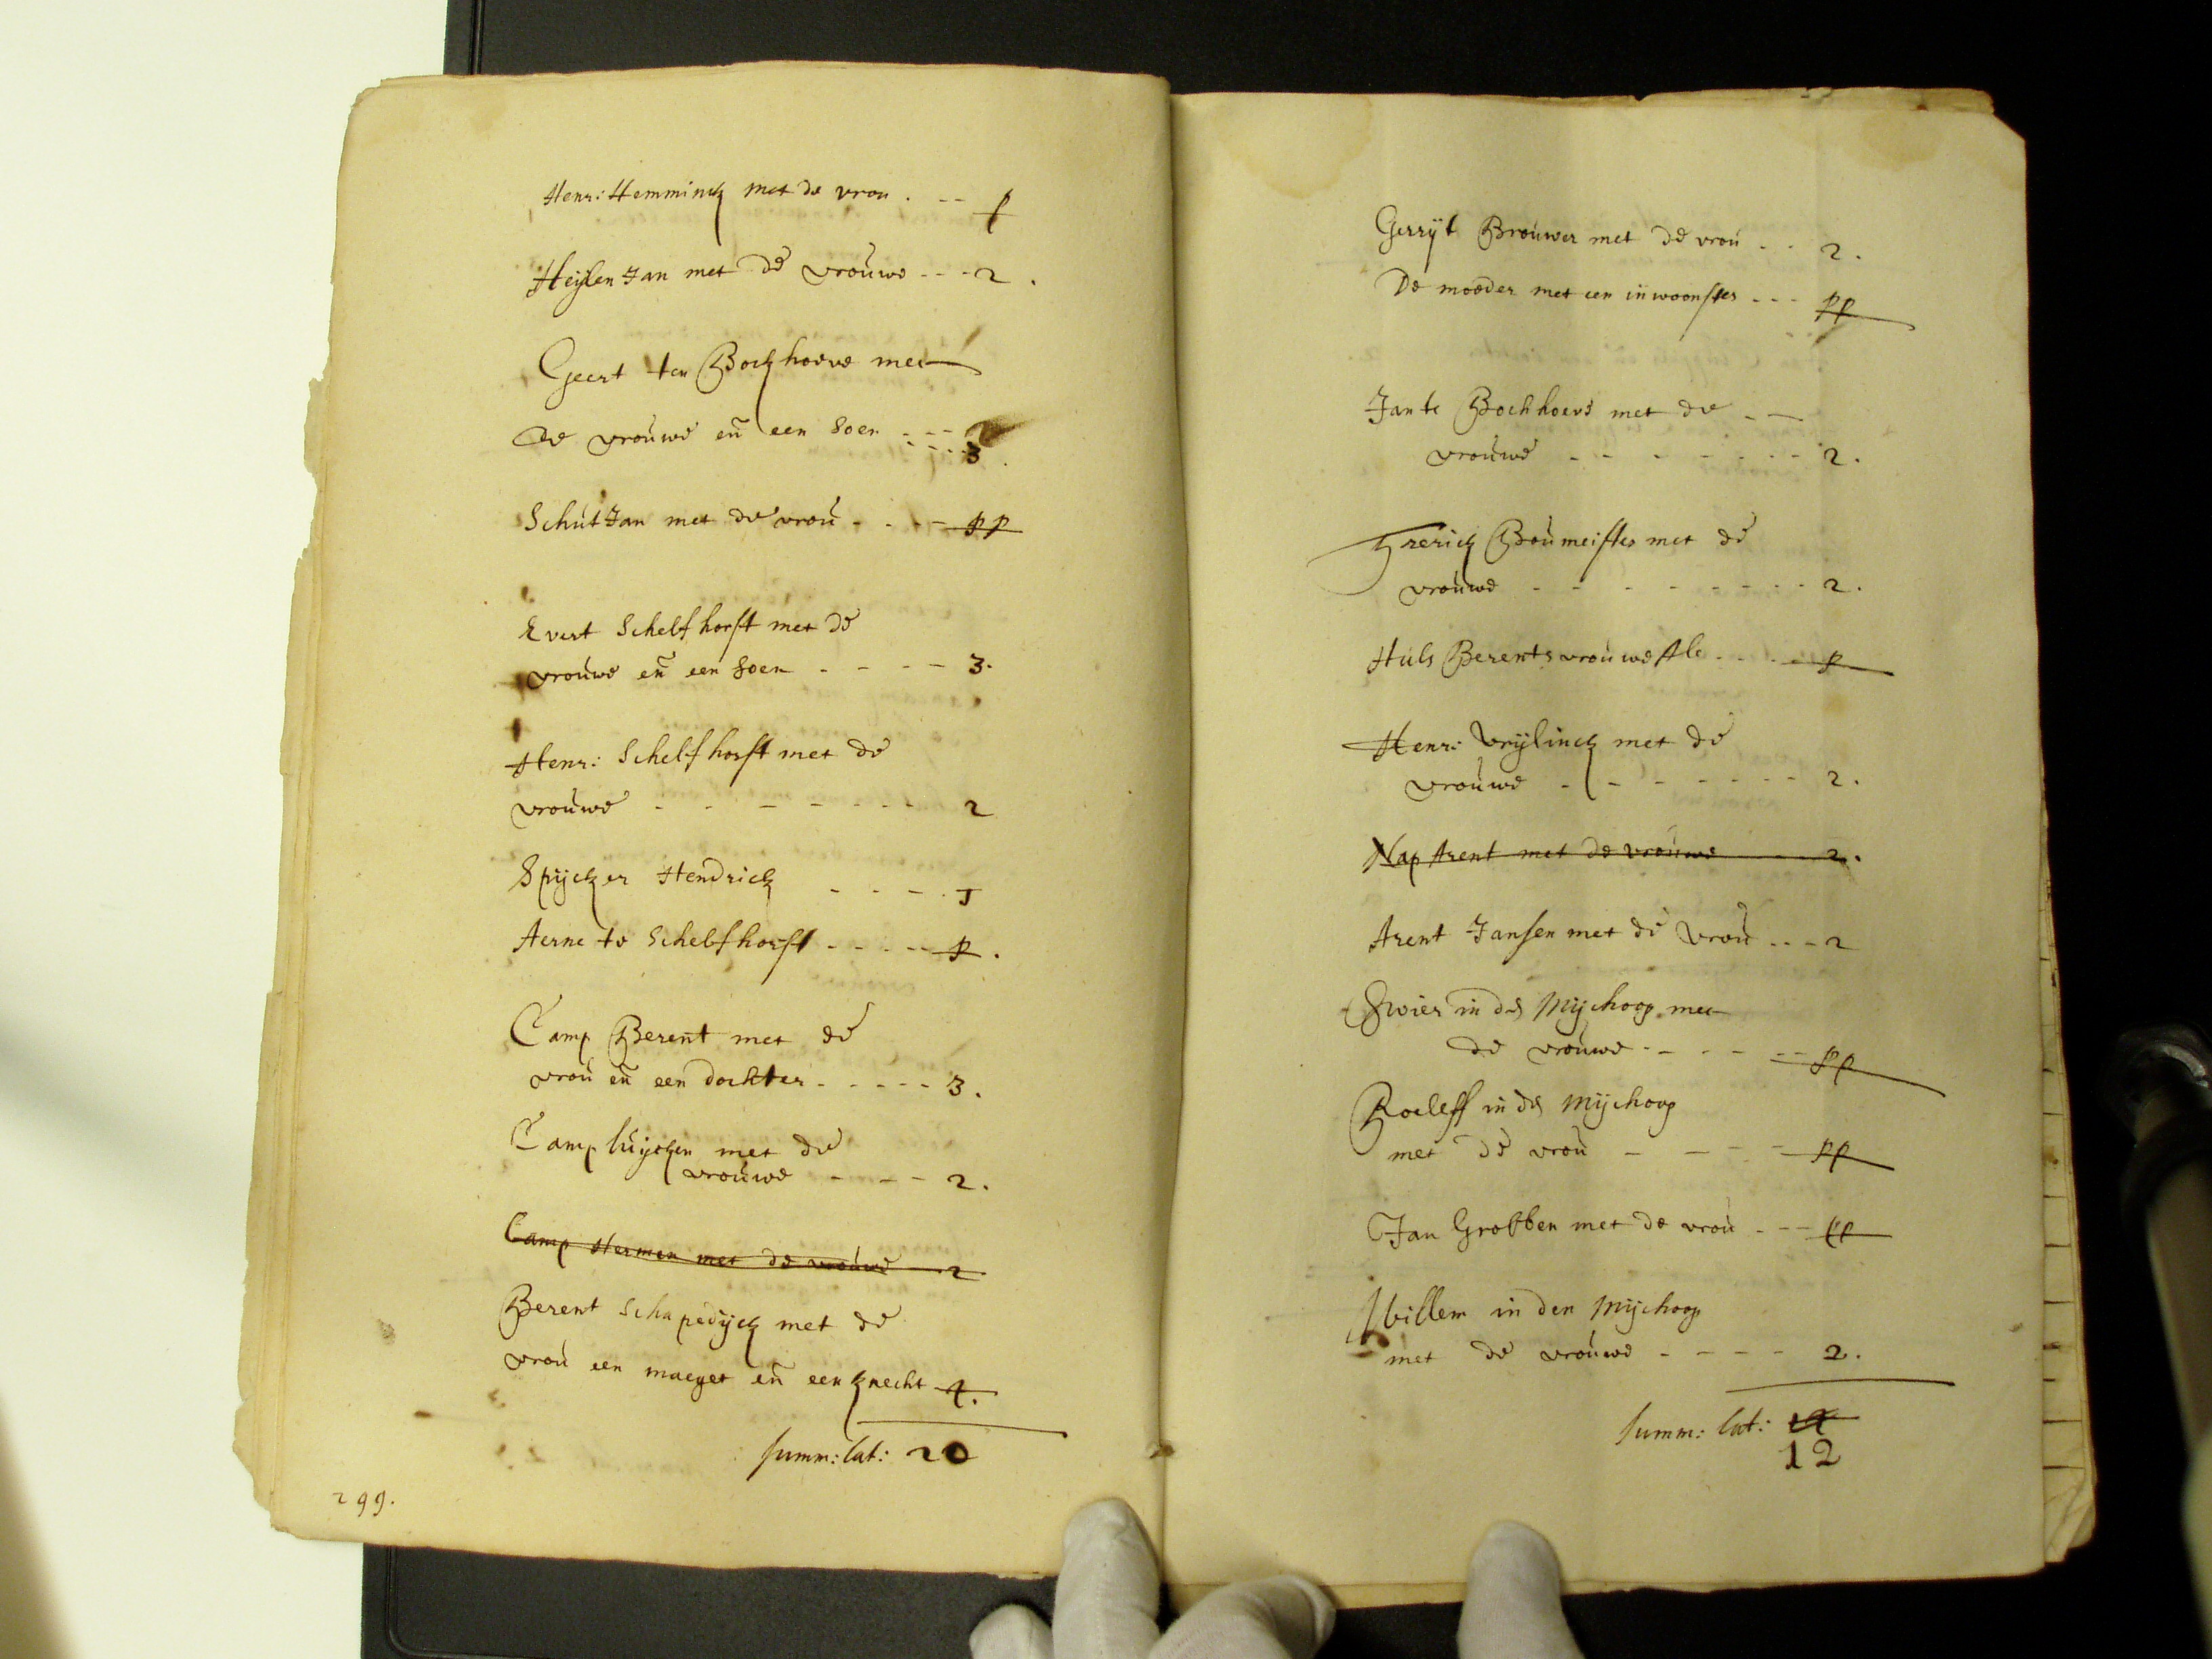 Henr: Hemminck met de vrou . -- p
Heijlen Jan met de vrouwe - - - 2 .
Geert ten Bockhoeve met
de vrouwe en̄ een soen - - -
- - - 3 .
Schut Jan met de vrou - - - - pp
Evert Schelfhorst met de
vrouwe en̄ een soen - - - - 3 .
Henr: Schelfhorst met de
vrouwe - - - - - - - 2
Spijcker Hendrick - - - - J
Aerne to Schelfhorst - - - - p .
Camp Berent met de
vrou en̄ een dochter - - - - - 3 .
Camp luijcken met de
vrouwe - - - - 2 .
Camp Hermen met de vrouwe - 2
Berent Schapedijck met de
vrou een maeget en̄ een knecht 4 .
summ: lat: 20
299.
Gerrijt Brouwer met de vrou - - 2 .
De moeder met een inwoonster - - - pp
Jan te Bockhoeve met de - -
vrouwe - - - - - - - 2 .
Frerick Boumeister met de
vrouwe - - - - - - - 2 .
Huls Berents vrouwe Ale - - - - p
Henr: Vrijlinck met de
vrouwe - - - - - - - 2 .
Nap Arent met de vrouwe - - - 2 .
Arent Jansen met de vrou - - - 2
Swier in de Mijchoop met
de vrouwe - - - - - - pp
Roeleff in de Mijchoop
met de vrou - - - - pp
Jan Grobben met de vrou - - - pp
Willem in den Mijchoop
met de vrouwe - - - - 2 .
summ: lat:
12